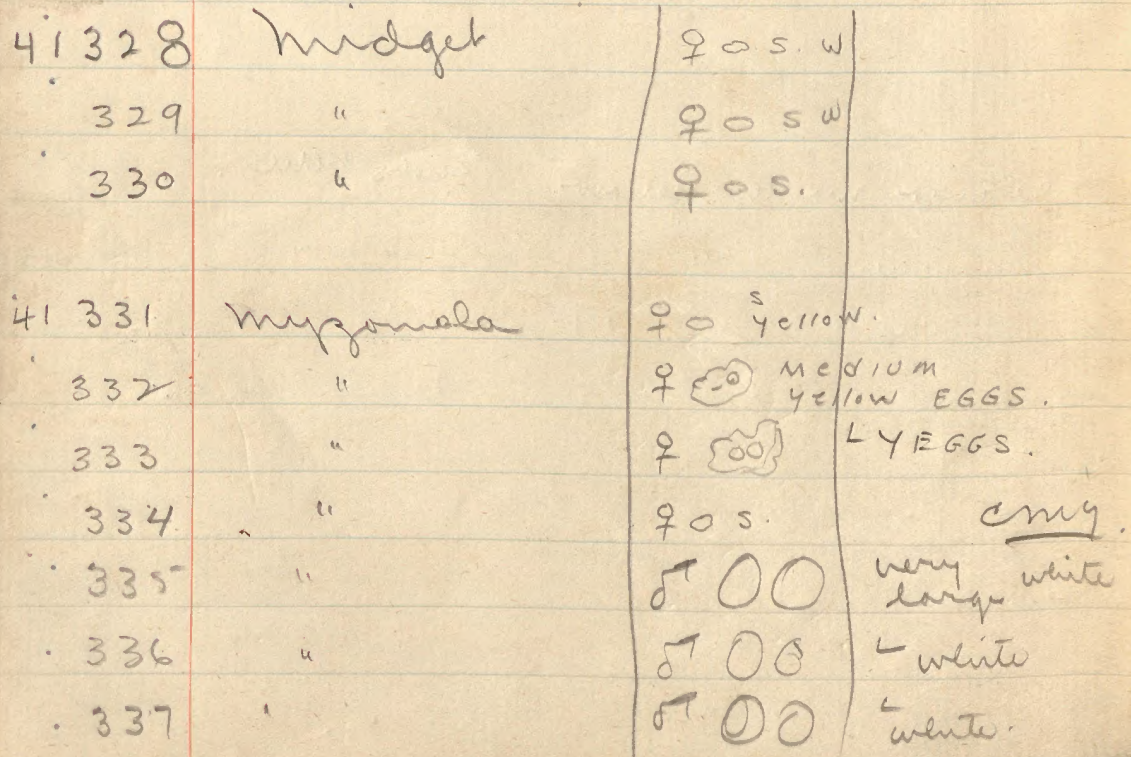 41328 Midget ♀ o s. w
329 " ♀ o s w
330 " ♀ o s.
41 331 Myzomala ♀ o s yellow.
332 " ♀ medium
yellow EGGS.
333 " ♀ L Y EGGS.
334 " ♀ o s. emy.
335 " ♂ very large white
336 " ♂ L white
337 " ♂ L white.